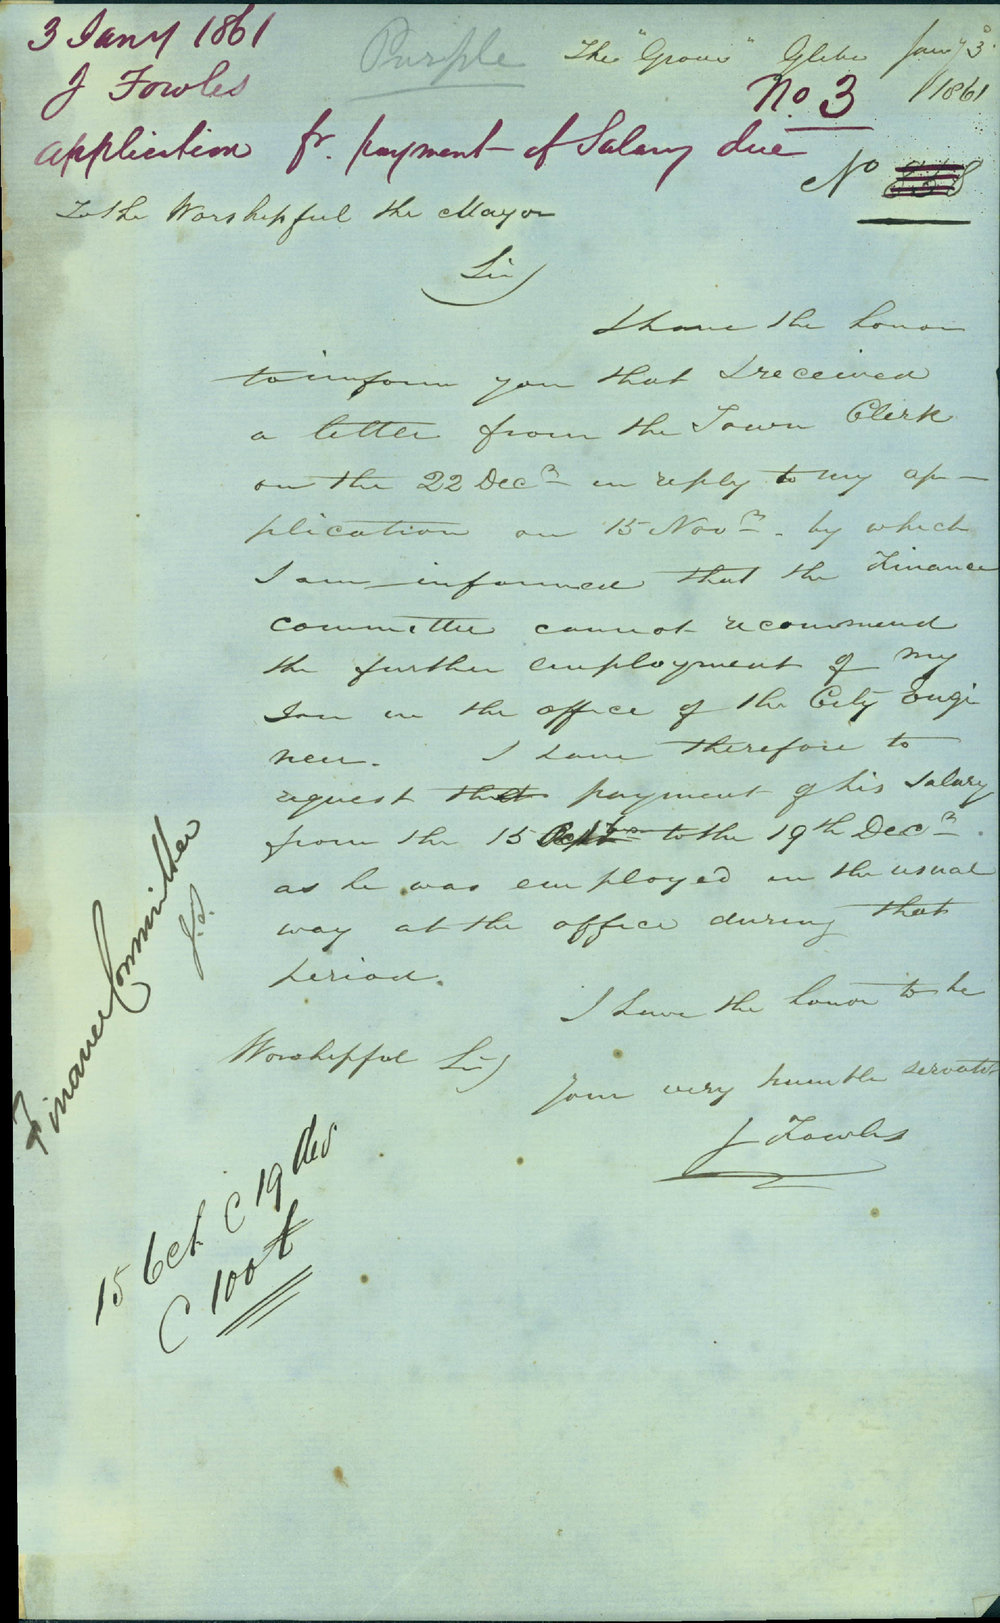 3 Jany 1861
J Fowles
application fr. payment of Salary due
Purple
The "Grove" Glebe Jany 3
1861
No. 3
No
To the Worshipful the Mayor
Sir
I have the honor
to inform you that I received
a letter from the Town Clerk
on the 22 Decr in reply to my ap-
plication on 15 Novr. by which
I am informed that the Finance
Committee cannot recommend
the further employment of my
son in the office of the City Engi
neer. I have therefore to
request that payment of his salary
from the 15 to the 19th Decr.
as he was employed in the usual
way at the office during that
period.
I have the honor to be
Worshipful Sir
Your very humble servant
J Fowles
Finance Committee
J.S.
15 Oct. @ 19 Dec
@ 100£